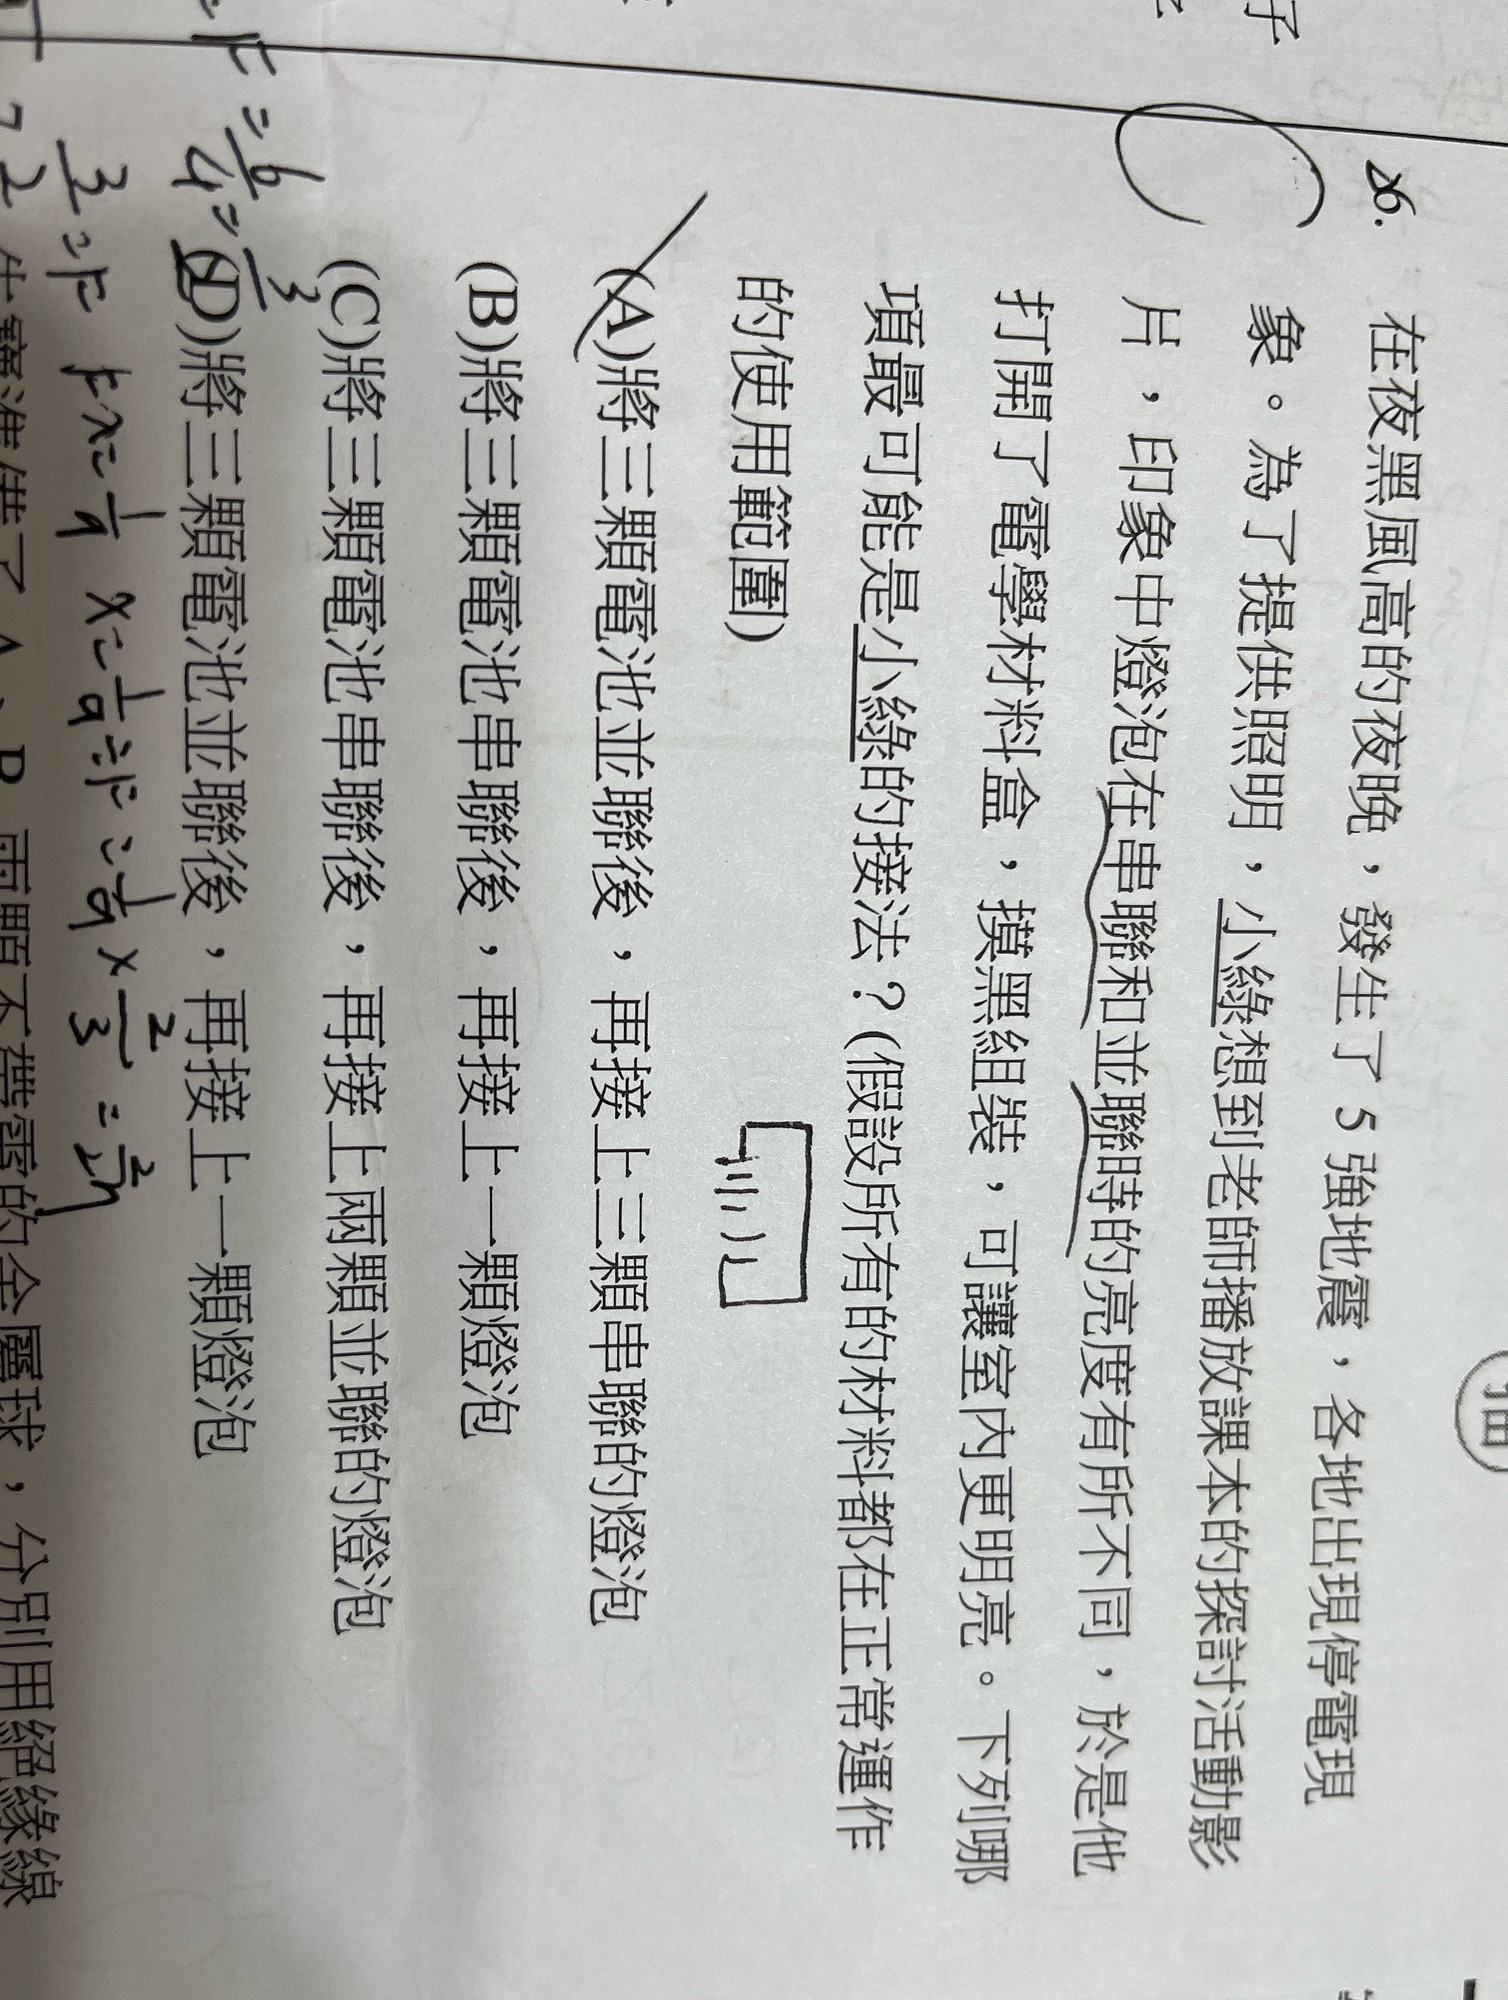 26.
在夜黑風高的夜晚，發生了5強地震，各地出現停電現
象。為了提供照明，小綠想到老師播放課本的探討活動影
片，印象中燈泡在串聯和並聯時的亮度有所不同，於是他
打開了電學材料盒，摸黑組裝，可讓室內更明亮。下列哪
項最可能是小綠的接法？(假設所有的材料都在正常運作
的使用範圍)
(A)將三顆電池並聯後，再接上三顆串聯的燈泡
(B)將三顆電池串聯後，再接上一顆燈泡
(C)將三顆電池串聯後，再接上兩顆並聯的燈泡
(D)將三顆電池並聯後，再接上一顆燈泡
兩顆不帶電的金屬球，分別用絕緣線